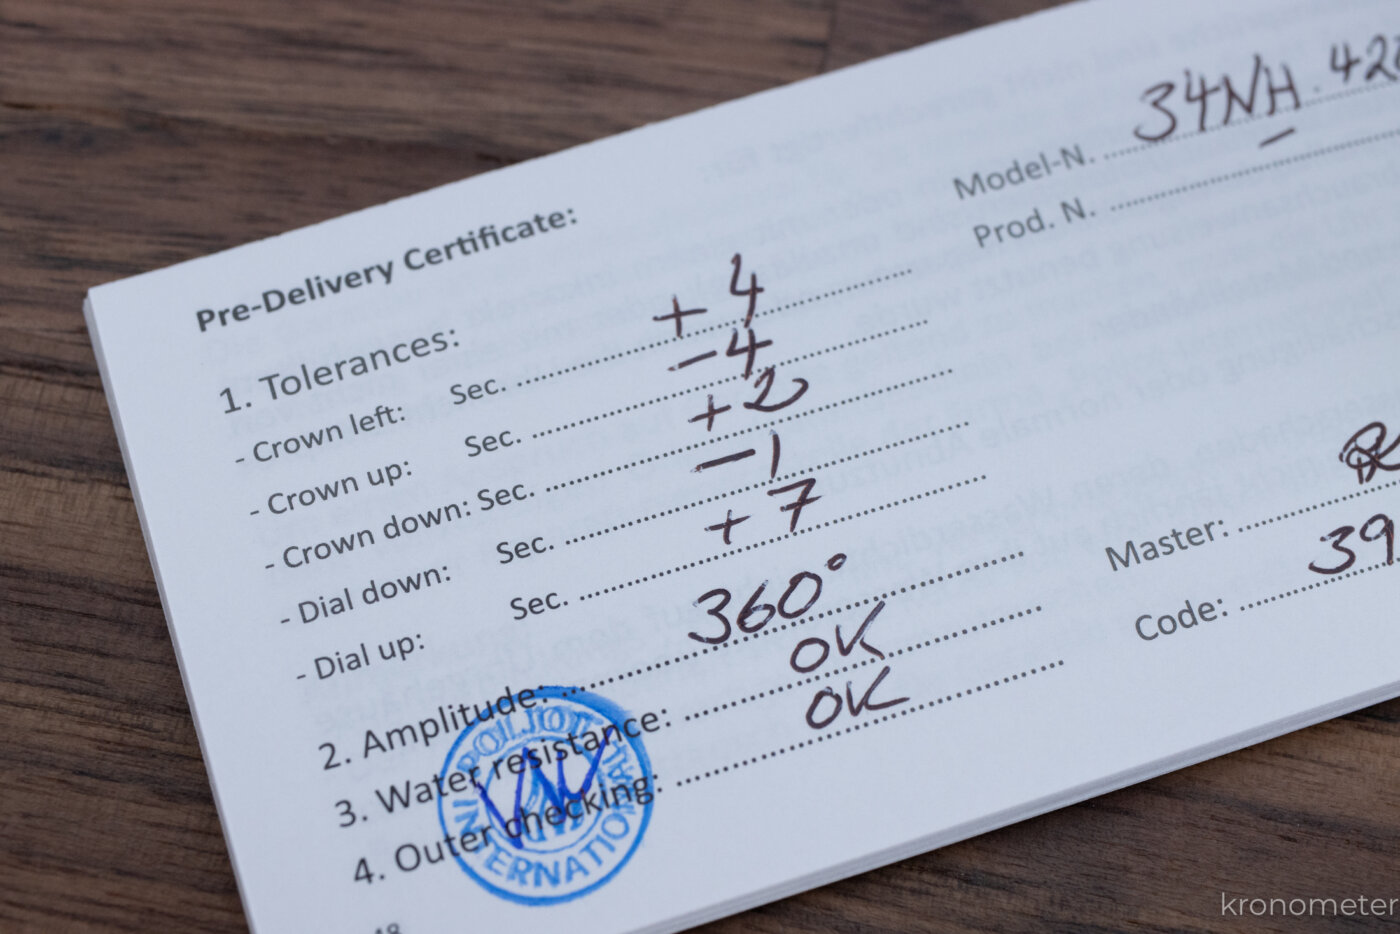 Pre-Delivery Certificate:
Model-N. 34NH.
Prod. N. –
1. Tolerances:
- Crown left: Sec. + 4
- Crown up: Sec. – 4
- Crown down: Sec. + 2
- Dial down: Sec. – 1
- Dial up: Sec. + 7
2. Amplitude: 360°
3. Water resistance: OK
4. Outer checking: OK
Master:
Code: 39
POLJOT INTERNATIONAL
48
kronometer